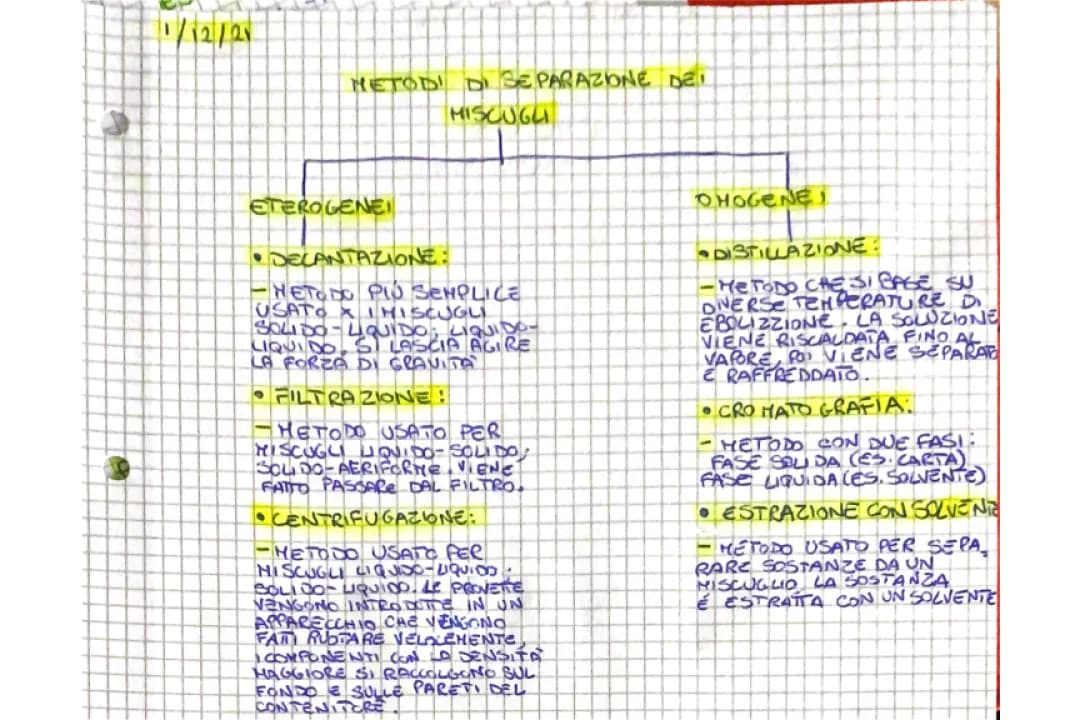 1/12/21
METODI DI SEPARAZIONE DEI
MISCUGLI
ETEROGENEI
• DECANTAZIONE:
– METODO PIÙ SEMPLICE
USATO X I MISCUGLI
SOLIDO-LIQUIDO; LIQUIDO-
LIQUIDO. SI LASCIA AGIRE
LA FORZA DI GRAVITÀ
• FILTRAZIONE:
– METODO USATO PER
MISCUGLI LIQUIDO-SOLIDO;
SOLIDO-AERIFORME. VIENE
FATTO PASSARE DAL FILTRO.
• CENTRIFUGAZIONE:
– METODO USATO PER
MISCUGLI LIQUIDO-LIQUIDO.
SOLIDO-LIQUIDO. LE PROVETTE
VENGONO INTRODOTTE IN UN
APPARECCHIO CHE VENGONO
FATTI RUOTARE VELOCEMENTE,
I COMPONENTI CON LA DENSITÀ
MAGGIORE SI RACCOLGONO SUL
FONDO E SULLE PARETI DEL
CONTENITORE.
OMOGENEI
• DISTILLAZIONE:
– METODO CHE SI BASE SU
DIVERSE TEMPERATURE DI
EBOLIZZIONE. LA SOLUZIONE
VIENE RISCALDATA FINO AL
VAPORE, POI VIENE SEPARATO
E RAFFREDDATO.
• CROMATOGRAFIA:
– METODO CON DUE FASI:
FASE SOLIDA (ES. CARTA)
FASE LIQUIDA (ES. SOLVENTE)
• ESTRAZIONE CON SOLVENTE
– METODO USATO PER SEPA-
RARE SOSTANZE DA UN
MISCUGLIO. LA SOSTANZA
É ESTRATTA CON UN SOLVENTE